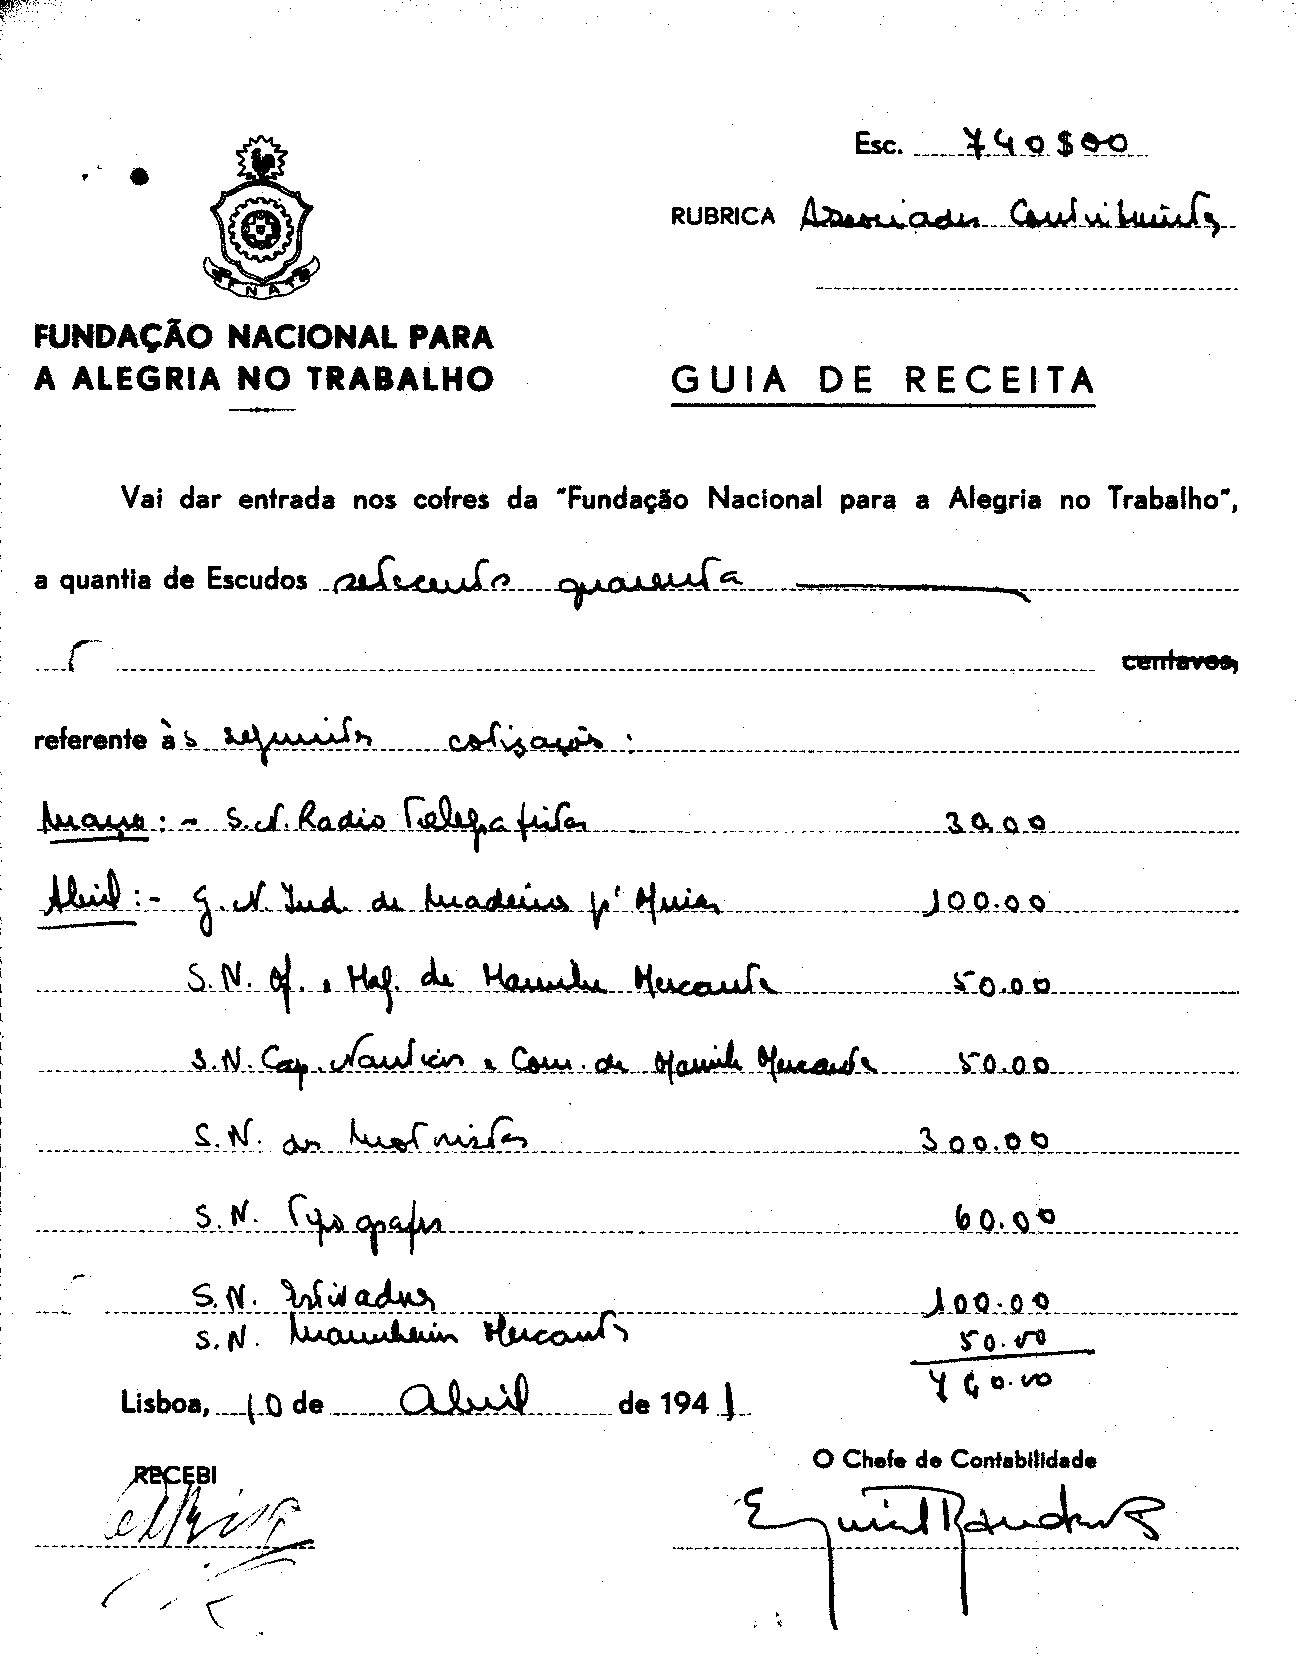 Esc. 740$00
RUBRICA Associados Contribuintes
FNAT
FUNDAÇÃO NACIONAL PARA
A ALEGRIA NO TRABALHO
GUIA DE RECEITA
Vai dar entrada nos cofres da "Fundação Nacional para a Alegria no Trabalho",
a quantia de Escudos setecentos quarenta
centavos,
referente às seguintes cotizações:
Março: - S.N. Radio Telegrafistas 30.00
Abril: - G.N. Ind. de Madeiras p' 100.00
S.N. Of. e Maq. da Marinha Mercante 50.00
S.N. Cap. Nauticos e Com. da Marinha Mercante 50.00
S.N. dos Motoristas 300.00
S.N. Typografos 60.00
S.N. Estivadores 100.00
S.N. Marinheiros Mercantes 50.00
740.00
Lisboa, 10 de Abril de 1941
RECEBI
O Chefe de Contabilidade